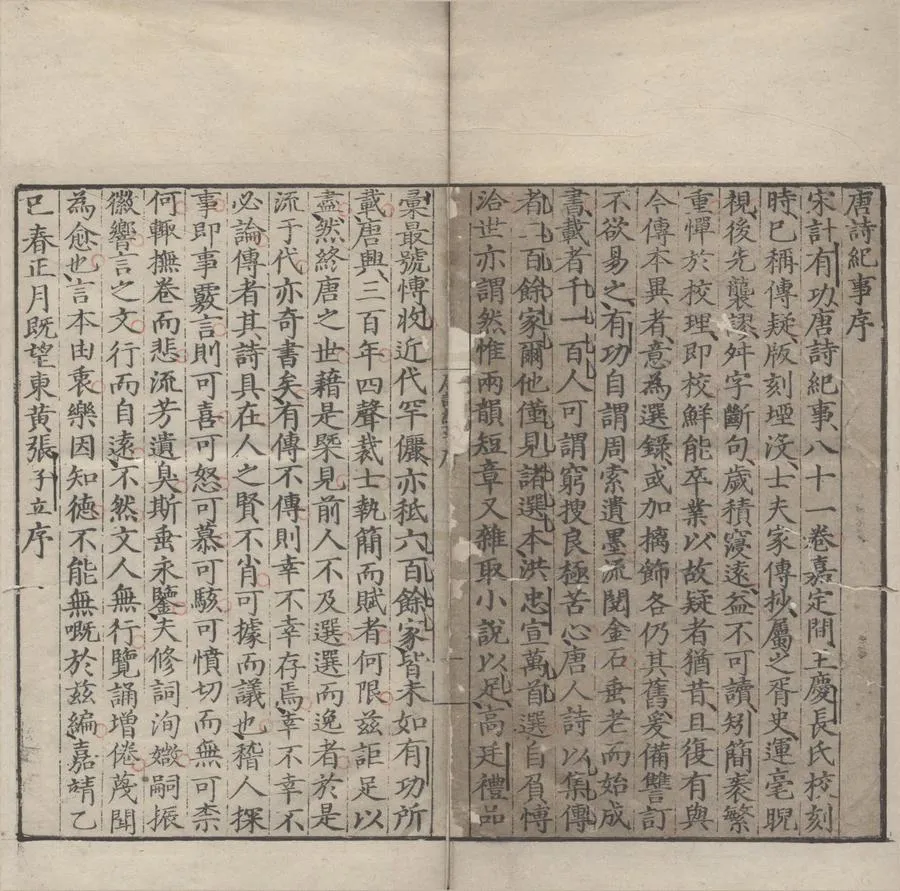 唐詩紀事序
宋計有功唐詩紀事八十一卷嘉定間王慶長氏校刻
時已稱傳疑版刻堙沒士夫家傳抄屬之胥史運毫睨
視後先襲謬舛字斷句歲積寖遠益不可讀矧簡袠繁
重憚於校理即校鮮能卒業以故疑者猶昔且復有與
今傳本異者意為選録或加擒飾各仍其舊爰備讐訂
不欲易之有功自謂周索遺墨流閱金石垂老而始成
書載者千一百人可謂窮搜良極苦心唐人詩以集傳
者二百餘家爾他僅見諸選本洪忠宣萬首選自負博
洽世亦謂然惟兩韻短章又雜取小說以足高廷禮品
彙最號慱收近代罕儷亦秪六百餘家皆未如有功所
載唐興三百年四聲裁士執簡而賦者何限茲詎足以
盡然終唐之世藉是槩見前人不及選選而逸者於是
流于代亦奇書矣有傳不傳則幸不幸存焉幸不幸不
必論傳者其詩具在人之賢不肖可據而議也稽人探
事即事覈言則可喜可怒可慕可駭可憤切而無可柰
何輙撫卷而悲流芳遺臭斯垂永鑒夫修詞洵媺嗣振
徽響言之文行而自遠不然文人無行覽誦增倦蔑聞
為愈也言本由衷樂因知德不能無嘅於茲編嘉靖乙
巳春正月既望東黄張子立序